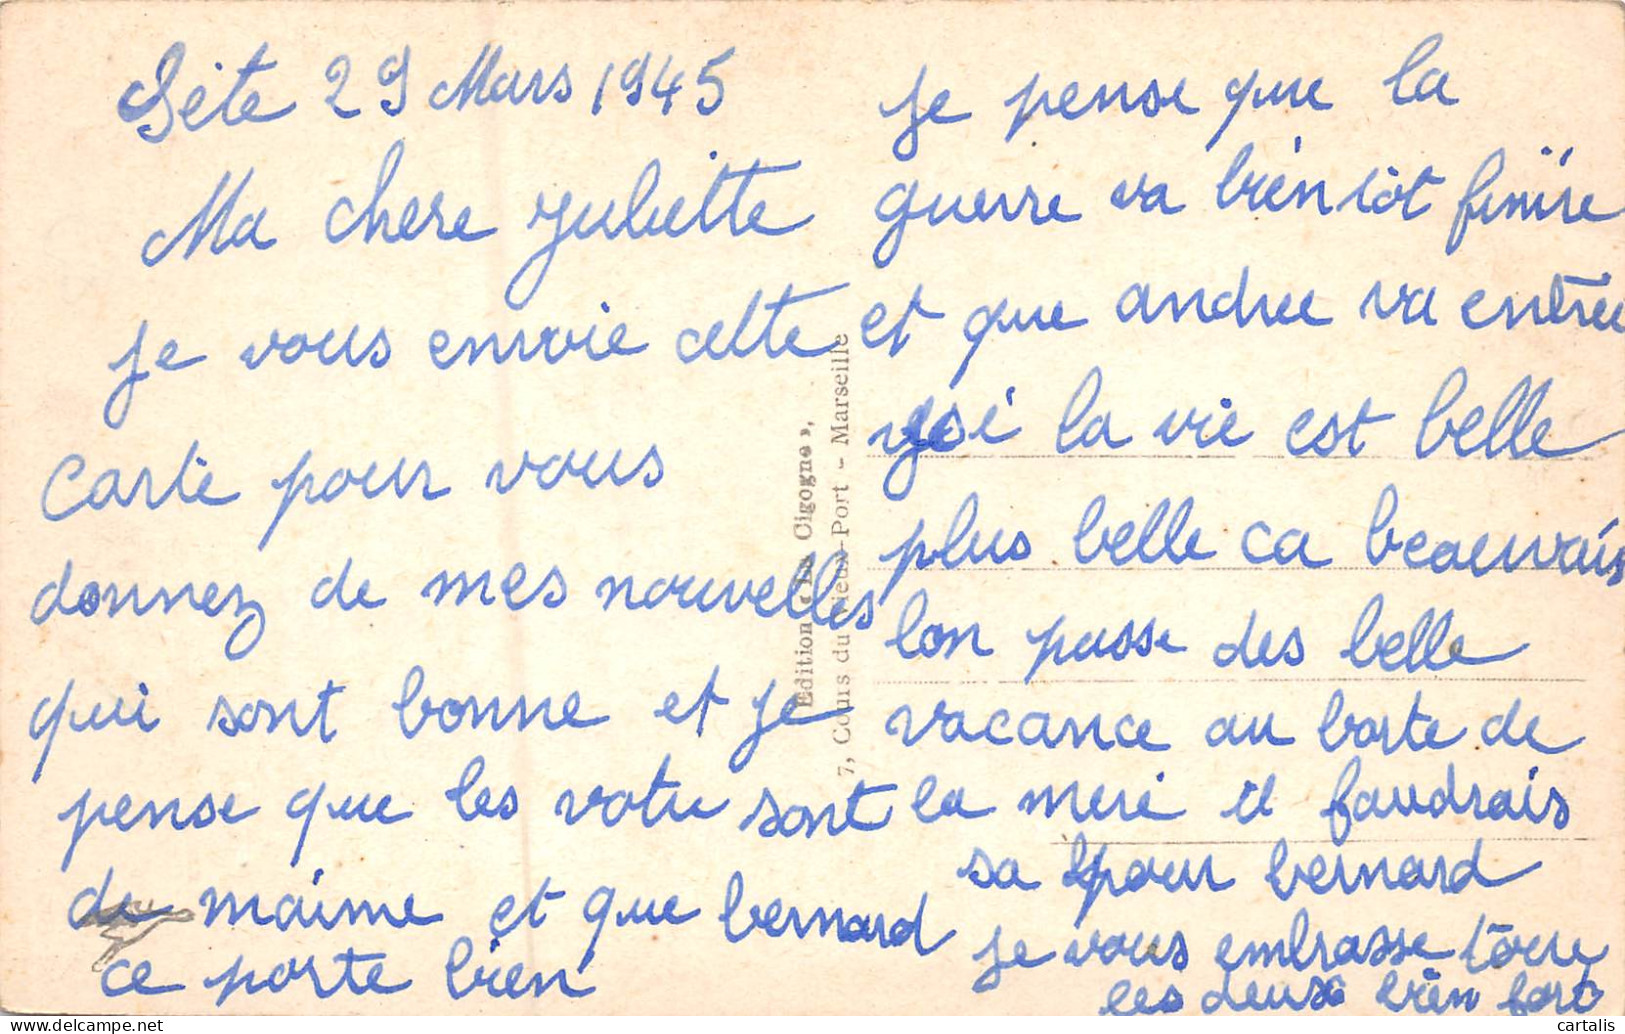 Sète 29 Mars 1945
Ma chere Juliette
je vous envoie cette
carte pour vous
donnez de mes nouvelles
qui sont bonne et je
pense que les votre sont
de maime et que bernard
ce porte bien
je pense que la
guerre va bientôt finire
et que andree va entree
isi la vie est belle
plus belle ca beauvais
lon passe des belle
vacance au borte de
la mere il faudrais
sa pour bernard
je vous embrasse toure
les deux bien fort
Edition « La Cigogne »,
7, Cours du Vieux-Port - Marseille
cartalis
www.delcampe.net